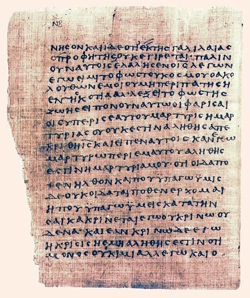 ΝΒ
ΝΗϹΟΝΚΑΙΙΔΕΟΤΙΕΚΤΗϹΓΑΛΙΛΑΙΑϹ
ΠΡΟΦΗΤΗϹΟΥΚΕΓΕΙΡΕΤΑΙ ΠΑΛΙΝ
ΟΥΝΑΥΤΟΙϹΕΛΑΛΗϹΕΝΟΙϹΛΕΓΩΝ
ΕΓΩΕΙΜΙΤΟΦΩϹΤΟΥΚΟϹΜΟΥΟΑΚΟ
ΛΟΥΘΩΝΕΜΟΙΟΥΜΗΠΕΡΙΠΑΤΗϹΗ
ΕΝΤΗϹΚΟΤΙΑΑΛΛΕΞΕΙΤΟΦΩϹΤΗϹ
ΖΩΗϹΕΙΠΟΝΟΥΝΑΥΤΩΟΙΦΑΡΙϹΑΙ
ΟΙϹΥΠΕΡΙϹΕΑΥΤΟΥΜΑΡΤΥΡΙϹΗΜΑΡ
ΤΥΡΙΑϹΟΥΟΥΚΕϹΤΙΝΑΛΗΘΗϹΑΠΕ
ΚΡΙΘΗΙϹΚΑΙΕΙΠΕΝΑΥΤΟΙϹΚΑΝΕΓΩ
ΜΑΡΤΥΡΩΠΕΡΙΕΜΑΥΤΟΥΑΛΗΘΗϹ
ΕϹΤΙΝΗΜΑΡΤΥΡΙΑΜΟΥΟΤΙΟΙΔΑΠΟ
ΘΕΝΗΛΘΟΝΚΑΙΠΟΥΥΠΑΓΩΥΜΕΙϹ
ΔΕΟΥΚΟΙΔΑΤΕΠΟΘΕΝΕΡΧΟΜΑΙ
ΗΠΟΥΥΠΑΓΩΥΜΕΙϹΚΑΤΑΤΗΝ
ϹΑΡΚΑΚΡΙΝΕΤΑΙΕΓΩΟΥΚΡΙΝΩΟΥ
ΔΕΝΑ ΚΑΙΕΑΝΚΡΙΝΩΔΕΕΓΩ
ΗΚΡΙϹΙϹΗΕΜΗΑΛΗΘΗϹΕϹΤΙΝΟΤΙ
ΜΟΝΟϹΟΥΚΕΙΜΙΑΛΛΕΓΩΚΑΙΟ